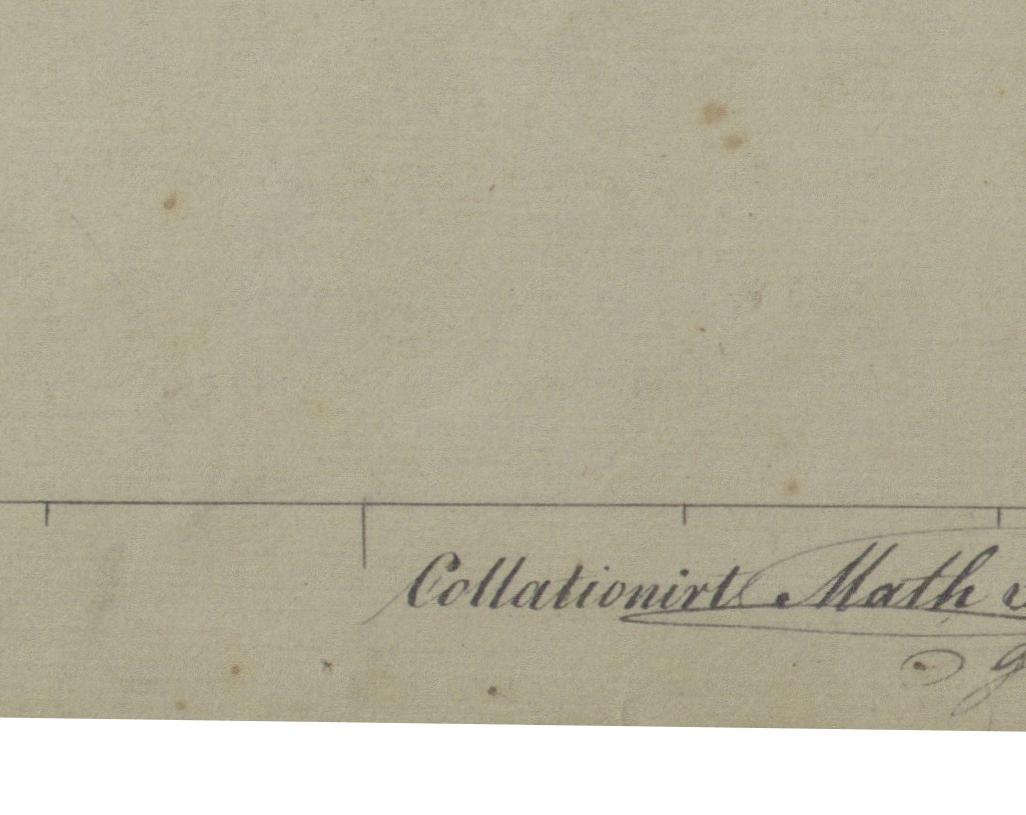 Collationirt Math